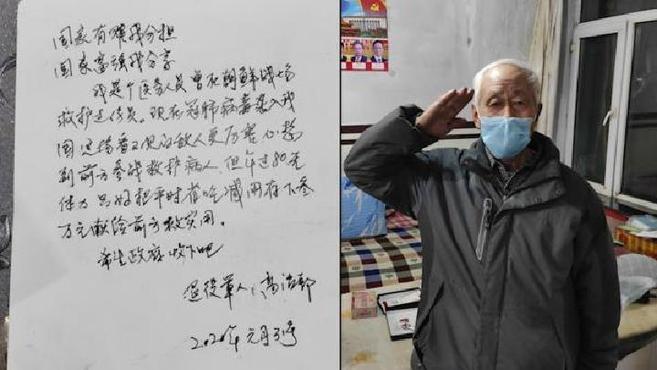 国家有难我分担
国家富强我分享
我是个医务人员曾在朝鲜战场
救护过伤员。现在冠肺病毒袭入我
国这场看不见的敌人更厉害心想
到前方参战救护病人。但年过80无
体力只好把平时省吃减用存下叁
万元献给前方救灾用。
希望政府收下吧
退役军人：高
2020年元月31号